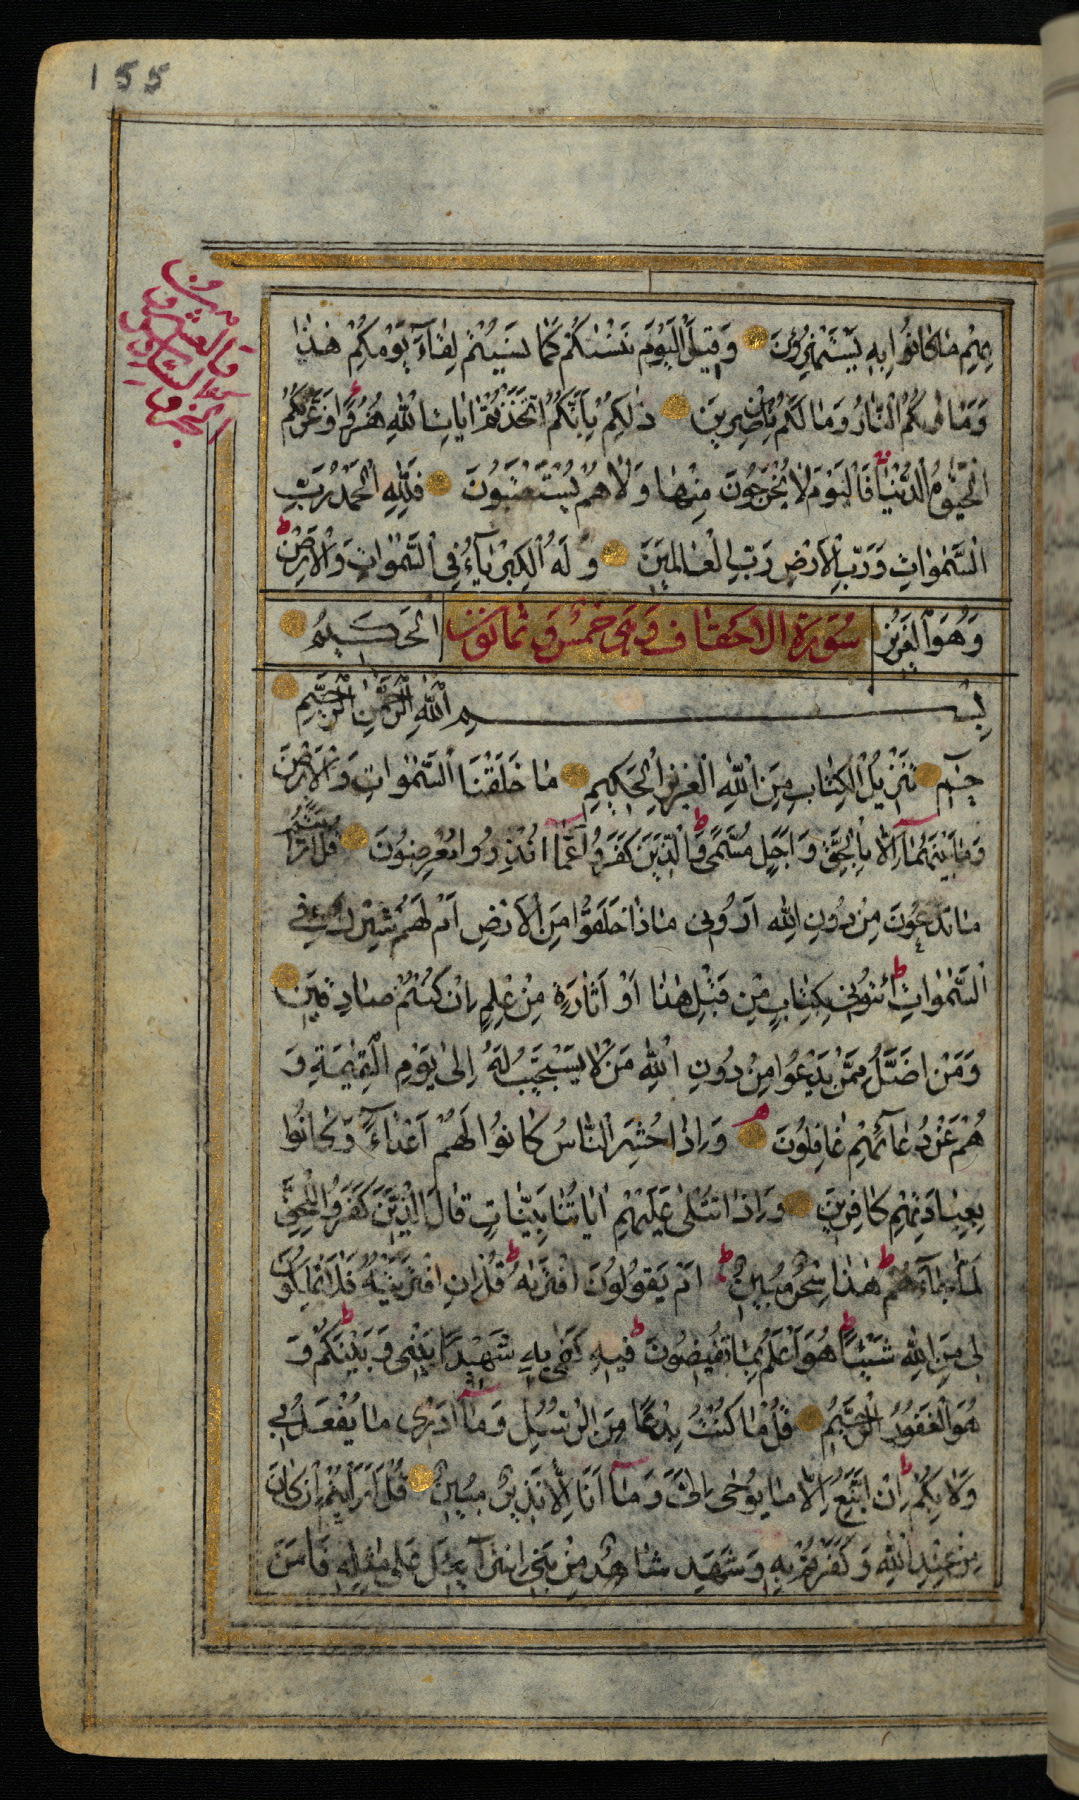 155
الجزء السادس والعشرون
بِهِمْ مٰا كٰانُوا بِهِ يَسْتَهْزِؤُنَ وَقِيلَ الْيَوْمَ نَنْسٰكُمْ كَمٰا نَسِيتُمْ لِقٰاءَ يَوْمِكُمْ هٰذٰا
وَمَأْوٰيكُمُ النّٰارُ وَمٰا لَكُمْ مِنْ نٰاصِرِينَ ذٰلِكُمْ بِأَنَّكُمُ اتَّخَذْتُمْ اٰيٰاتِ اللّٰهِ هُزُوًا وَغَرَّتْكُمُ
الْحَيٰوةُ الدُّنْيٰا فَالْيَوْمَ لٰا يُخْرَجُونَ مِنْهٰا وَلٰا هُمْ يُسْتَعْتَبُونَ فَلِلّٰهِ الْحَمْدُ رَبِّ
السَّمٰوٰاتِ وَرَبِّ الْأَرْضِ رَبِّ الْعٰالَمِينَ وَلَهُ الْكِبْرِيٰاءُ فِي السَّمٰوٰاتِ وَالْأَرْضِ
وَهُوَ الْعَزِيزُ سُورَةُ الاحقاف وَهِيَ خمس وثمانون الْحَكِيمُ
بِسْمِ اللّٰهِ الرَّحْمٰنِ الرَّحِيمِ
حٰمٓ تَنْزِيلُ الْكِتٰابِ مِنَ اللّٰهِ الْعَزِيزِ الْحَكِيمِ مٰا خَلَقْنَا السَّمٰوٰاتِ وَالْأَرْضَ
وَمٰا بَيْنَهُمٰا إِلّٰا بِالْحَقِّ وَأَجَلٍ مُسَمًّى وَالَّذِينَ كَفَرُوا عَمّٰا أُنْذِرُوا مُعْرِضُونَ قُلْ أَرَأَيْتُمْ
مٰا تَدْعُونَ مِنْ دُونِ اللّٰهِ أَرُونِي مٰاذٰا خَلَقُوا مِنَ الْأَرْضِ أَمْ لَهُمْ شِرْكٌ فِي
السَّمٰوٰاتِ ائْتُونِي بِكِتٰابٍ مِنْ قَبْلِ هٰذٰا أَوْ أَثٰارَةٍ مِنْ عِلْمٍ إِنْ كُنْتُمْ صٰادِقِينَ
وَمَنْ أَضَلُّ مِمَّنْ يَدْعُوا مِنْ دُونِ اللّٰهِ مَنْ لٰا يَسْتَجِيبُ لَهُ إِلٰى يَوْمِ الْقِيٰمَةِ وَ
هُمْ عَنْ دُعٰائِهِمْ غٰافِلُونَ وَإِذٰا حُشِرَ النّٰاسُ كٰانُوا لَهُمْ أَعْدٰاءً وَكٰانُوا
بِعِبٰادَتِهِمْ كٰافِرِينَ وَإِذٰا تُتْلٰى عَلَيْهِمْ اٰيٰاتُنٰا بَيِّنٰاتٍ قٰالَ الَّذِينَ كَفَرُوا لِلْحَقِّ
لَمّٰا جٰاءَهُمْ هٰذٰا سِحْرٌ مُبِينٌ أَمْ يَقُولُونَ افْتَرٰيهُ قُلْ إِنِ افْتَرَيْتُهُ فَلٰا تَمْلِكُونَ
لِي مِنَ اللّٰهِ شَيْئًا هُوَ أَعْلَمُ بِمٰا تُفِيضُونَ فِيهِ كَفٰى بِهِ شَهِيدًا بَيْنِي وَبَيْنَكُمْ وَ
هُوَ الْغَفُورُ الرَّحِيمُ قُلْ مٰا كُنْتُ بِدْعًا مِنَ الرُّسُلِ وَمٰا أَدْرِي مٰا يُفْعَلُ بِي
وَلٰا بِكُمْ إِنْ أَتَّبِعُ إِلّٰا مٰا يُوحٰى إِلَيَّ وَمٰا أَنَا إِلّٰا نَذِيرٌ مُبِينٌ قُلْ أَرَأَيْتُمْ إِنْ كٰانَ
مِنْ عِنْدِ اللّٰهِ وَكَفَرْتُمْ بِهِ وَشَهِدَ شٰاهِدٌ مِنْ بَنِي إِسْرٰائِيلَ عَلٰى مِثْلِهِ فَاٰمَنَ